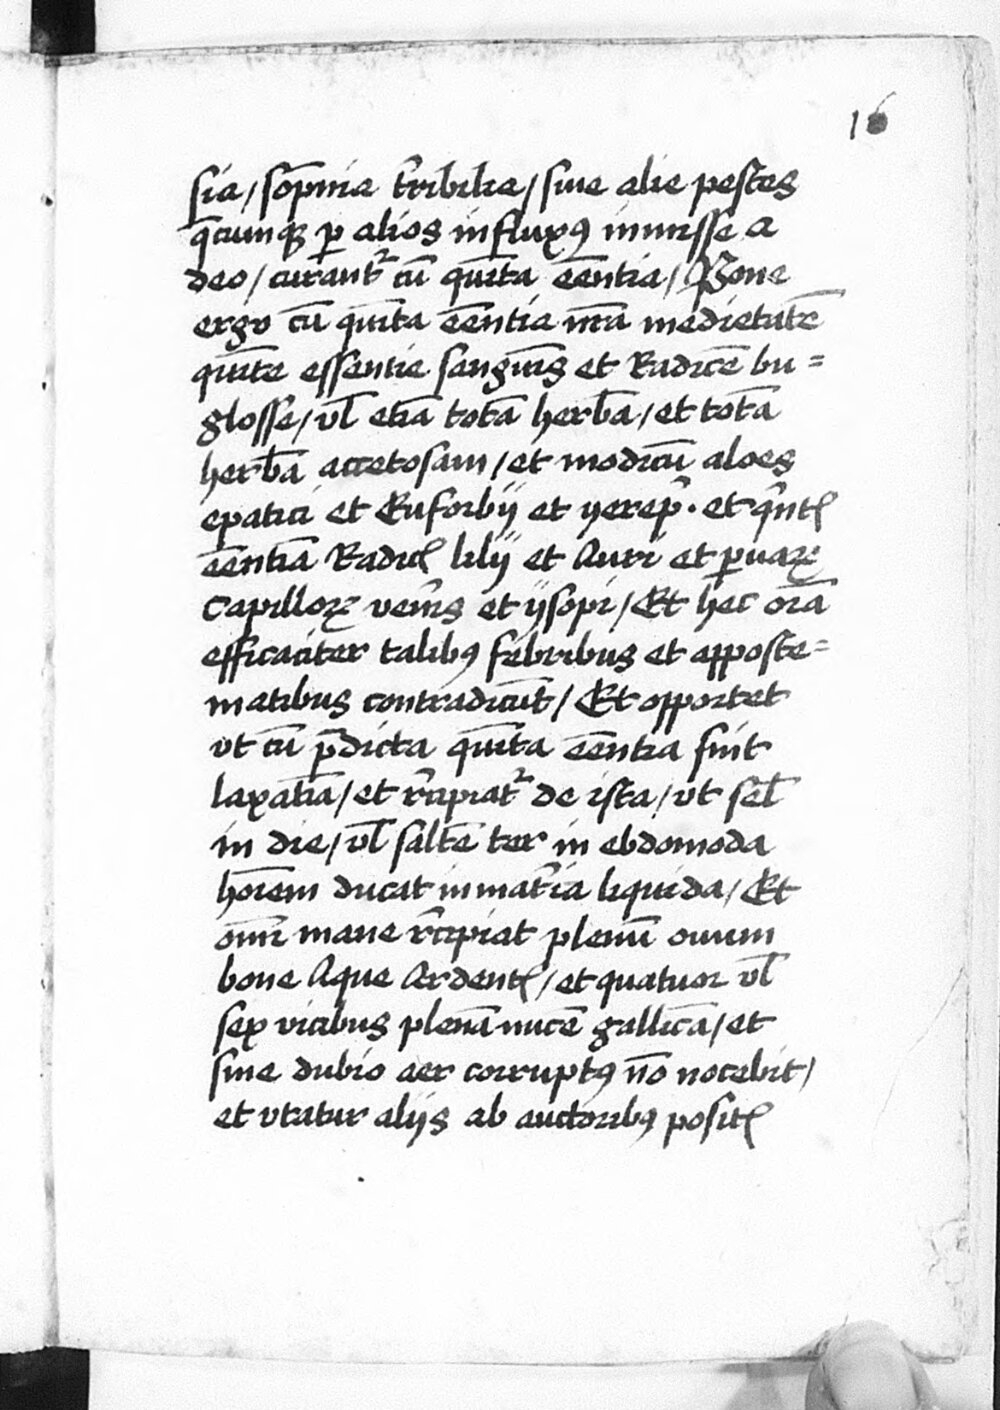 16
sia / so̅pnia tͬribilia / siue alie pestes
qͨcunqꝫ ꝑ alios influxꝰ inmisse a
deo / curantᷣ cu̅ qui̅ta ee̅ntia / Pone
ergo cu̅ qui̅ta ee̅ntia nr̅a medietate̅
qui̅te essentie sangui̅s et Radice̅ bu=
glosse / vl̅ etia̅ tota̅ herba̅ / et tota̅
herba̅ accetosam / et modicu̅ aloes
epatici et Euforbij et yerep̾ · et qͥntꝭ
ee̅ntia̅ Radicꝭ lilij et Auri et ꝑuaꝝ
Capilloꝝ vene̅is et ysopi / Et hec oı̅a
efficaciter talibꝰ febribus et apposte=
matibus contradicu̅t / Et opportet
vt cu̅ p̅dicta qui̅ta ee̅ntia sint
laxati̅a / et r̾cipiatᷣ de ista / vt sel̅
in die / vl̅ salte̅ ter in ebdomoda
ho̅iem ducat in mat̾ia liquida / Et
om̅i mane r̾cipiat plenu̅ ouum
bone Aque Ardentꝭ / et quatuor vl̅
sex vicibus plena̅ nuce̅ gallica̅ / et
sine dubio aer corruptꝰ no̅ nocebit /
et vtatur alijs ab auctoribꝰ positꝭ